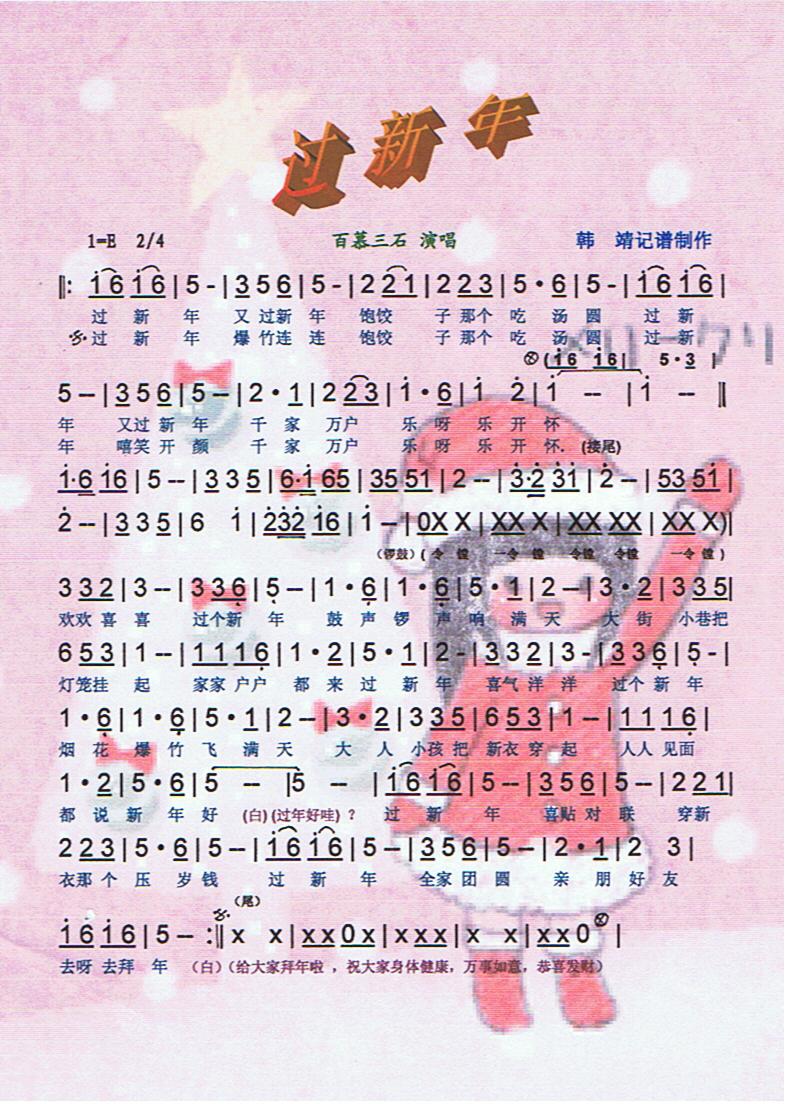 过新年
1=E 2/4 百慕三石 演唱 韩 靖记谱制作
‖: i6 i6 | 5 - | 3 5 6 | 5 - | 2 2 1 | 2 2 3 | 5 · 6 | 5 - | i6 i6 |
过 新 年 又 过新 年 饱饺 子 那个 吃 汤 圆 过 新
𝄋 过 新 年 爆 竹连 连 饱饺 子 那个 吃 汤 圆 过 新
メリークリ
(i6 i6 | 5 · 3 |
5 -- | 3 5 6 | 5 -- | 2 · 1 | 2 2 3 | i · 6 | i 2̇ | i -- | i -- ‖
年 又过 新 年 千 家 万户 乐 呀 乐 开 怀
年 嘻笑 开 颜 千 家 万户 乐 呀 乐 开 怀. (接尾)
i·6 i6 | 5 -- | 3 3 5 | 6·i 65 | 35 51 | 2 -- | 3̇·2̇ 3̇i | 2̇ -- | 53 5i |
2̇ -- | 3 3 5 | 6 i | 2̇3̇2̇ i6 | i -- | 0X X | XX X | XX XX | XX X)|
(锣鼓)( 令 镗 一令 镗 令镗 令镗 一令 镗 )
3 3 2 | 3 -- | 3 3 6̣ | 5̣ -- | 1 · 6̣ | 1 · 6̣ | 5 · 1 | 2 -- | 3 · 2 | 3 3 5 |
欢欢 喜 喜 过个新 年 鼓 声 锣 声 响 满 天 大 街 小巷把
6 5 3 | 1 -- | 1 1 1 6̣ | 1 · 2 | 5 · 1 | 2 - | 3 3 2 | 3 - | 3 3 6̣ | 5̣ - |
灯笼挂 起 家家 户户 都 来 过 新 年 喜气 洋 洋 过个 新 年
1 · 6̣ | 1 · 6̣ | 5 · 1 | 2 -- | 3 · 2 | 3 3 5 | 6 5 3 | 1 -- | 1 1 1 6̣ |
烟 花 爆 竹 飞 满 天 大 人 小孩 把 新衣 穿 起 人人 见面
1 · 2 | 5 · 6 | 5 -- | 5 -- | i6 i6 | 5 -- | 3 5 6 | 5 -- | 2 2 1 |
都 说 新 年 好 (白)(过年好哇)? 过 新 年 喜贴 对 联 穿新
2 2 3 | 5 · 6 | 5 -- | i6 i6 | 5 -- | 3 5 6 | 5 -- | 2 · 1 | 2 3 |
衣那 个 压 岁 钱 过 新 年 全家 团 圆 亲 朋 好 友
𝄋 (尾)
i6 i6 | 5 -- :‖ x x | x x 0 x | x x x | x x | x x 0 |
去呀 去拜 年 (白)(给大家拜年啦 ,祝大家身体健康,万事如意,恭喜发财)